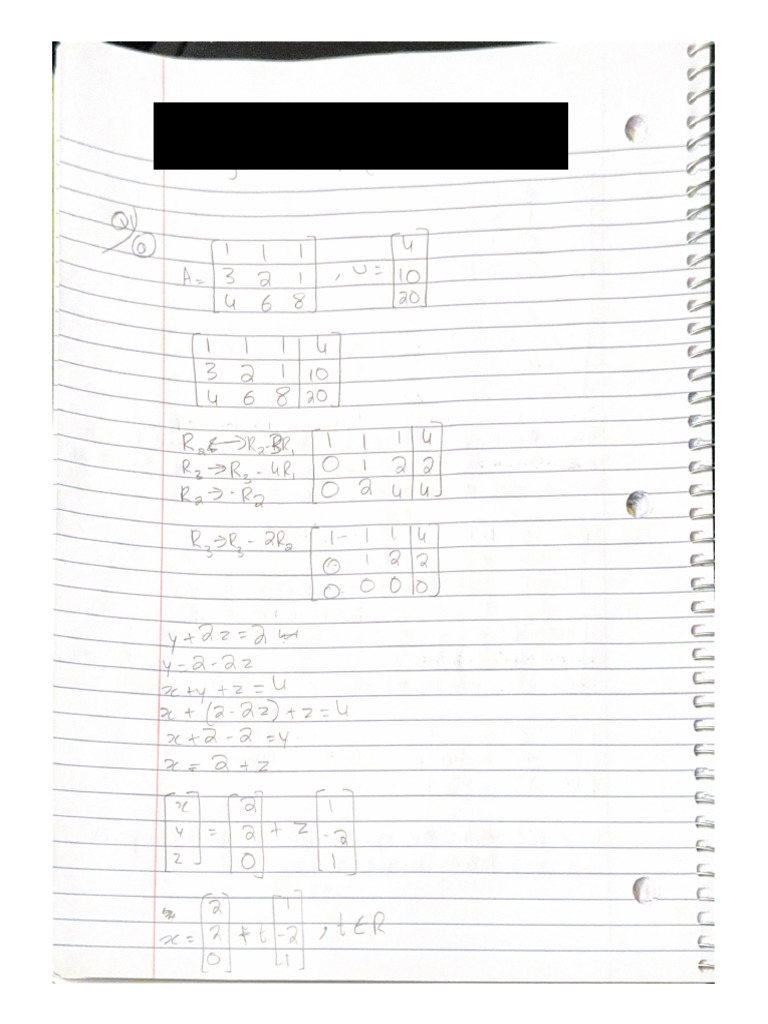 Q1 a
A = [1 1 1; 3 2 1; 4 6 8], U = [4; 10; 20]
[1 1 1 | 4]
[3 2 1 | 10]
[4 6 8 | 20]
R2 <-> R2-3R1 [1 1 1 | 4]
R3 -> R3 - 4R1 [0 1 2 | 2]
R2 -> -R2 [0 2 4 | 4]
R3 -> R3 - 2R2 [1 1 1 | 4]
[0 1 2 | 2]
[0 0 0 | 0]
y + 2z = 2
y = 2 - 2z
x + y + z = 4
x + (2 - 2z) + z = 4
x + 2 - 2 = 4
x = 2 + z
[x; y; z] = [2; 2; 0] + z [1; -2; 1]
x = [2; 2; 0] + t [1; -2; 1], t ∈ R